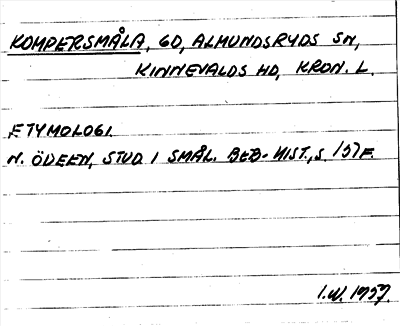 KOMPERSMÅLA, GD, ALMUNDSRYDS SN,
KINNEVALDS HD, KRON. L.
ETYMOLOGI
N. ÖDEEN, STUD. I SMÅL. BEB-HIST., S. 157F.
I.W. 1959.